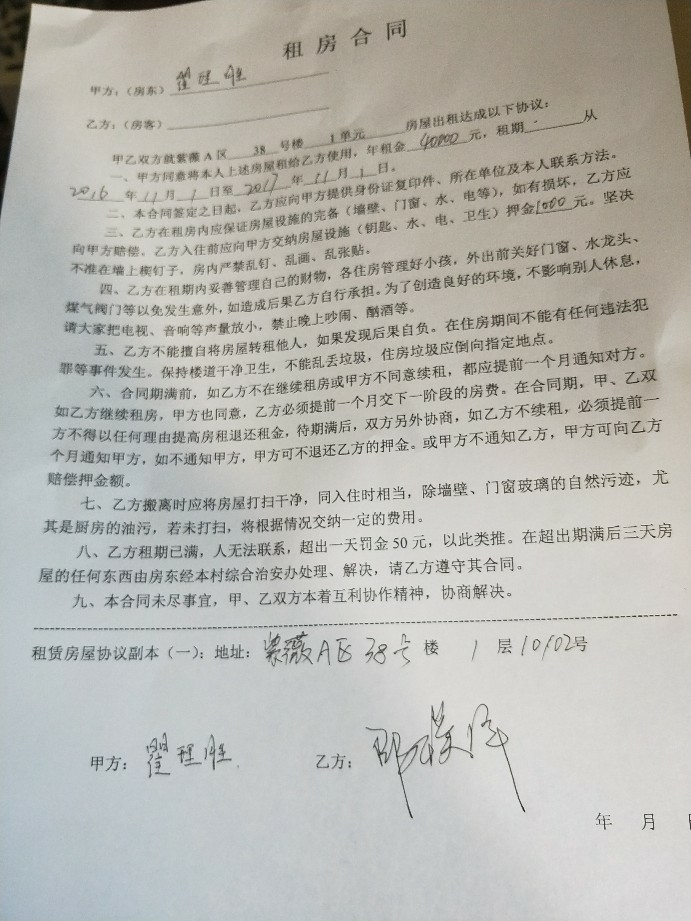 租房合同
甲方：（房东）翟理胜
乙方：（房客）
甲乙双方就紫薇A区 38 号楼 1单元 房屋出租达成以下协议：
一、甲方同意将本人上述房屋租给乙方使用，年租金 40000 元，租期 从
2016 年 11 月 1 日至 2017 年 11 月 1 日。
二、本合同签定之日起，乙方应向甲方提供身份证复印件、所在单位及本人联系方法。
三、乙方在租房内应保证房屋设施的完备（墙壁、门窗、水、电等），如有损坏，乙方应
向甲方赔偿。乙方入住前应向甲方交纳房屋设施（钥匙、水、电、卫生）押金1000元。坚决
不准在墙上楔钉子，房内严禁乱钉、乱画、乱张贴。
四、乙方在租期内妥善管理自己的财物，各住房管理好小孩，外出前关好门窗、水龙头、
煤气阀门等以免发生意外，如造成后果乙方自行承担。为了创造良好的环境，不影响别人休息，
请大家把电视、音响等声量放小，禁止晚上吵闹、酗酒等。
五、乙方不能擅自将房屋转租他人，如果发现后果自负。在住房期间不能有任何违法犯
罪等事件发生。保持楼道干净卫生，不能乱丢垃圾，住房垃圾应倒向指定地点。
六、合同期满前，如乙方不在继续租房或甲方不同意续租，都应提前一个月通知对方。
如乙方继续租房，甲方也同意，乙方必须提前一个月交下一阶段的房费。在合同期，甲、乙双
方不得以任何理由提高房租退还租金，待期满后，双方另外协商，如乙方不续租，必须提前一
个月通知甲方，如不通知甲方，甲方可不退还乙方的押金。或甲方不通知乙方，甲方可向乙方
赔偿押金额。
七、乙方搬离时应将房屋打扫干净，同入住时相当，除墙壁、门窗玻璃的自然污迹，尤
其是厨房的油污，若未打扫，将根据情况交纳一定的费用。
八、乙方租期已满，人无法联系，超出一天罚金50元，以此类推。在超出期满后三天房
屋的任何东西由房东经本村综合治安办处理、解决，请乙方遵守其合同。
九、本合同未尽事宜，甲、乙双方本着互利协作精神，协商解决。
租赁房屋协议副本（一）：地址：紫薇A区 38号 楼 1 层 10102号
甲方：翟理胜 乙方：
年 月